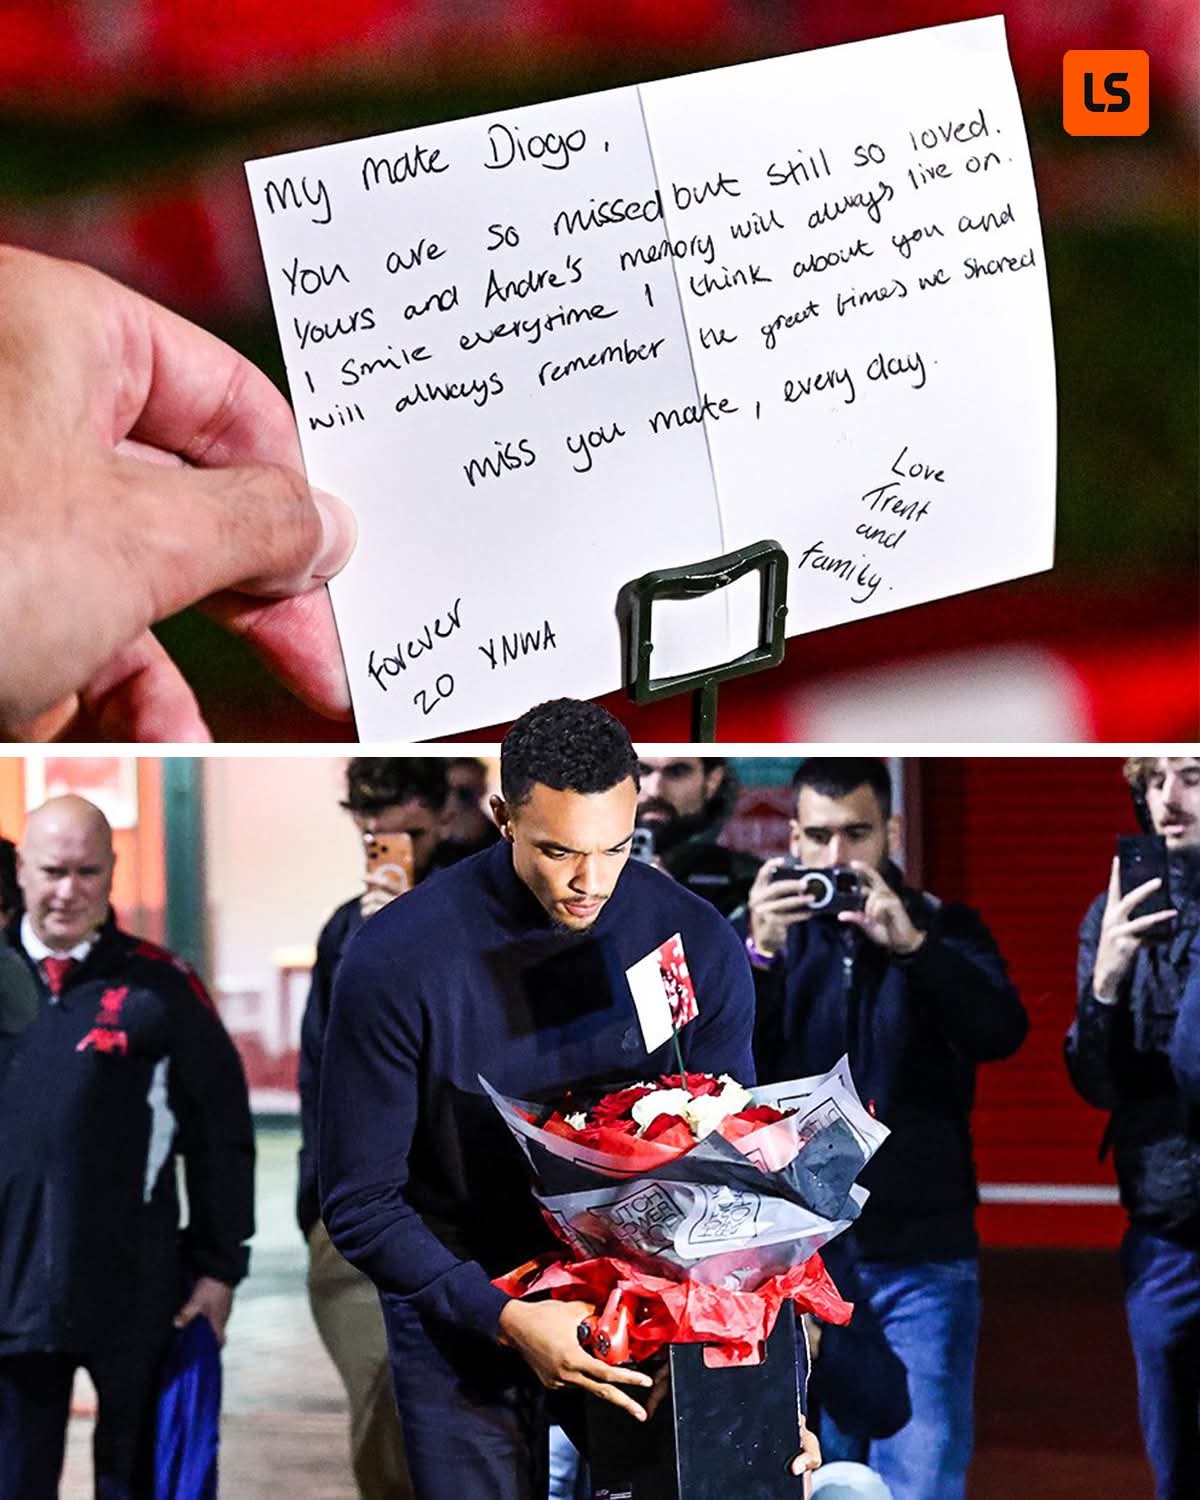 LS
My mate Diogo,
You are so missed but still so loved.
Yours and Andre's memory will always live on.
I smile everytime I think about you and
will always remember the great times we shared
miss you mate, every day.
Love
Trent
and
family.
Forever
20 YNWA